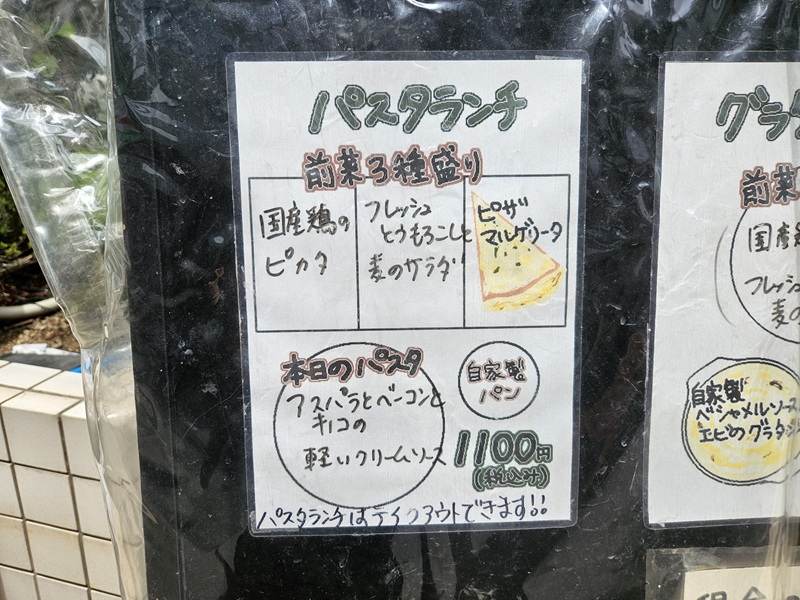 パスタランチ
前菜3種盛り
国産鶏の
ピカタ
フレッシュ
とうもろこしと
麦のサラダ
ピザ
マルゲリータ
本日のパスタ
アスパラとベーコンと
キノコの
軽いクリームソース
自家製
パン
1100円
(税込み)
パスタランチはテイクアウトできます!!
グラ
前菜
国産
フレッシュ
麦の
自家製
ベシャメルソース
エビのグラタン